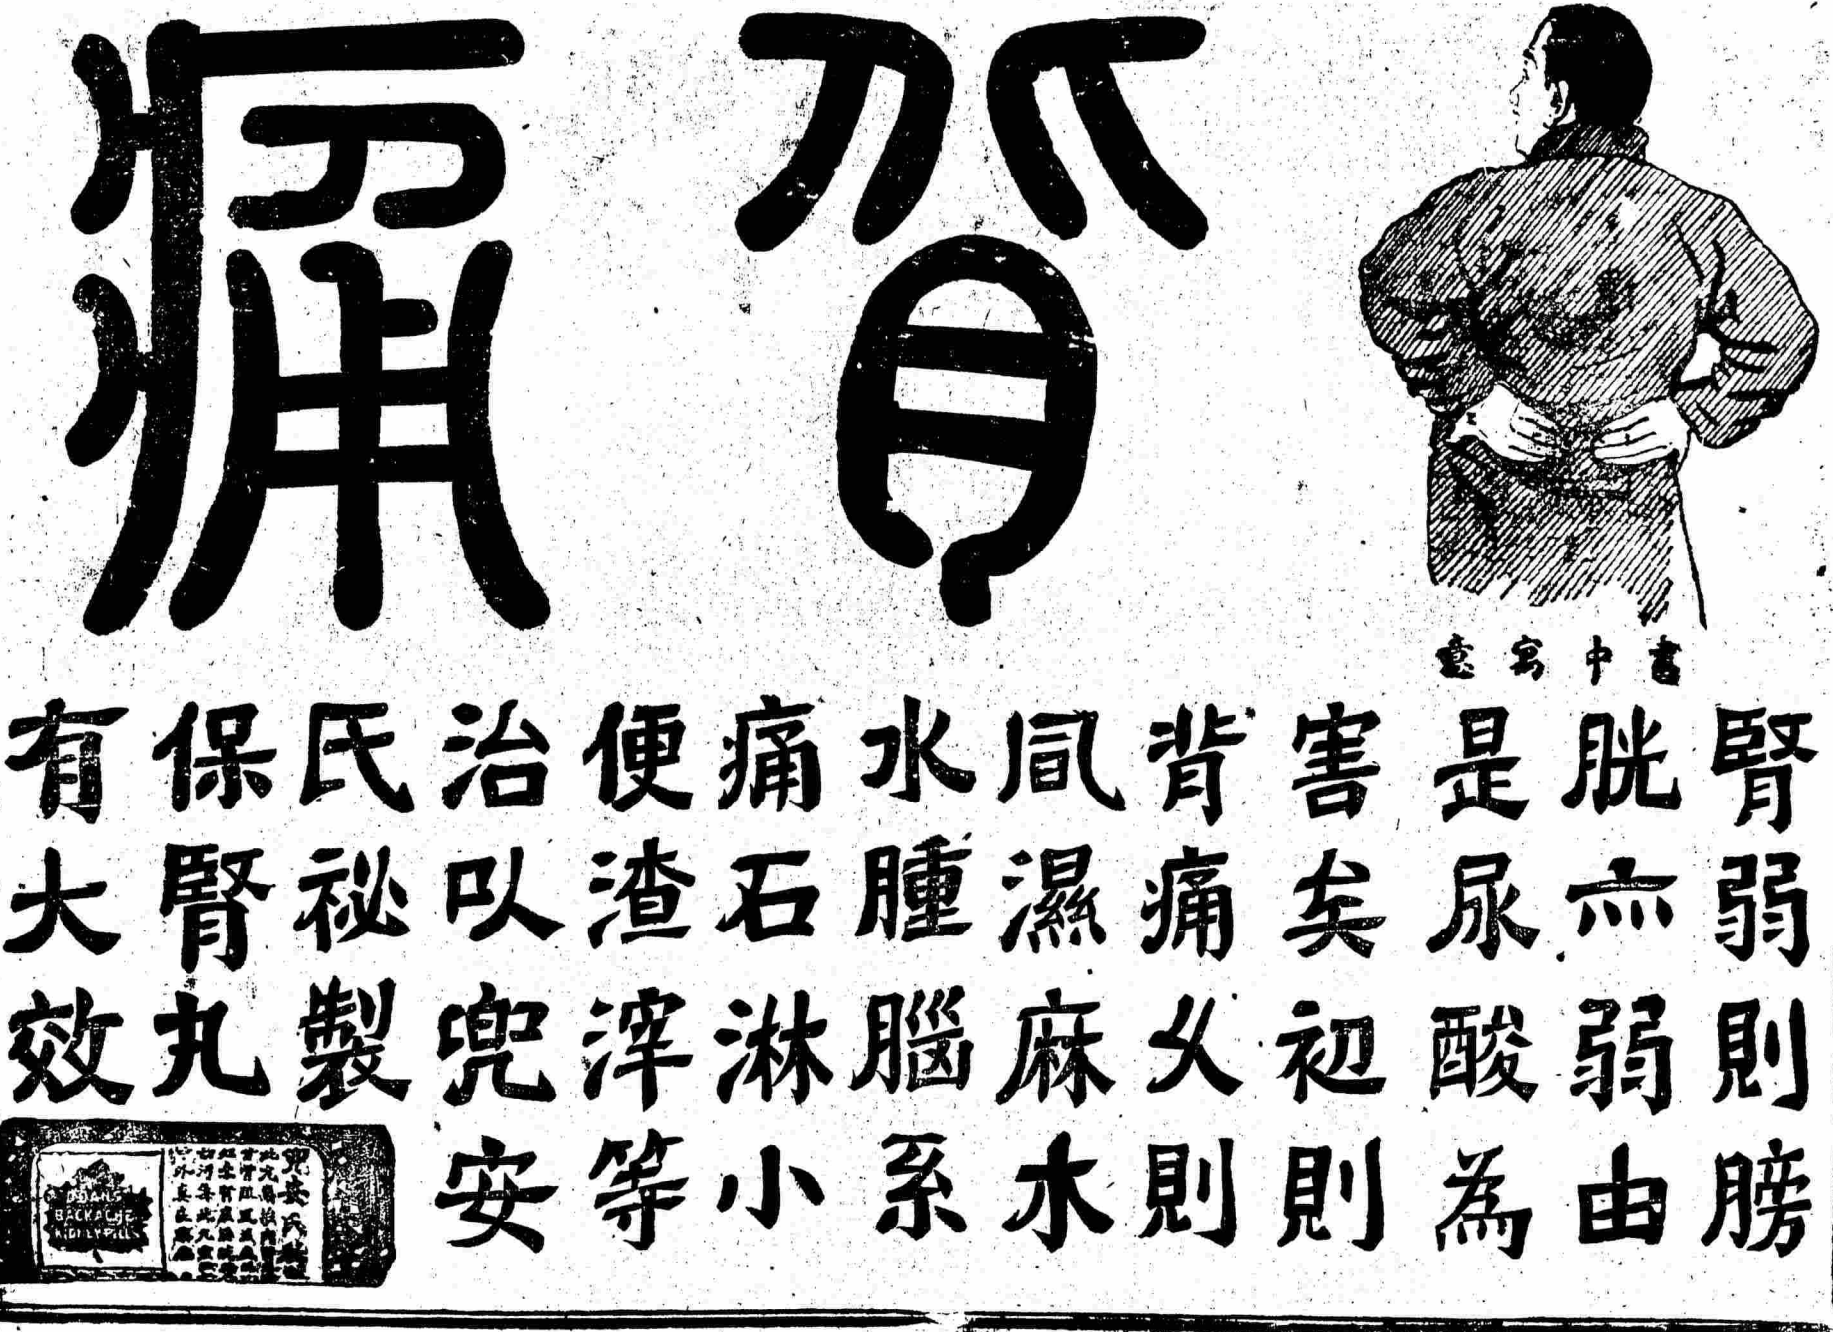 背痛
書中寓意
腎弱則膀
胱亦弱由
是尿酸為
害矣初則
背痛久則
風濕麻木
水腫腦系
痛石淋小
便渣滓等
治以兜安
氏祕製
保腎丸
有大效
DOAN'S
BACKACHE
KIDNEY PILLS
兜安氏